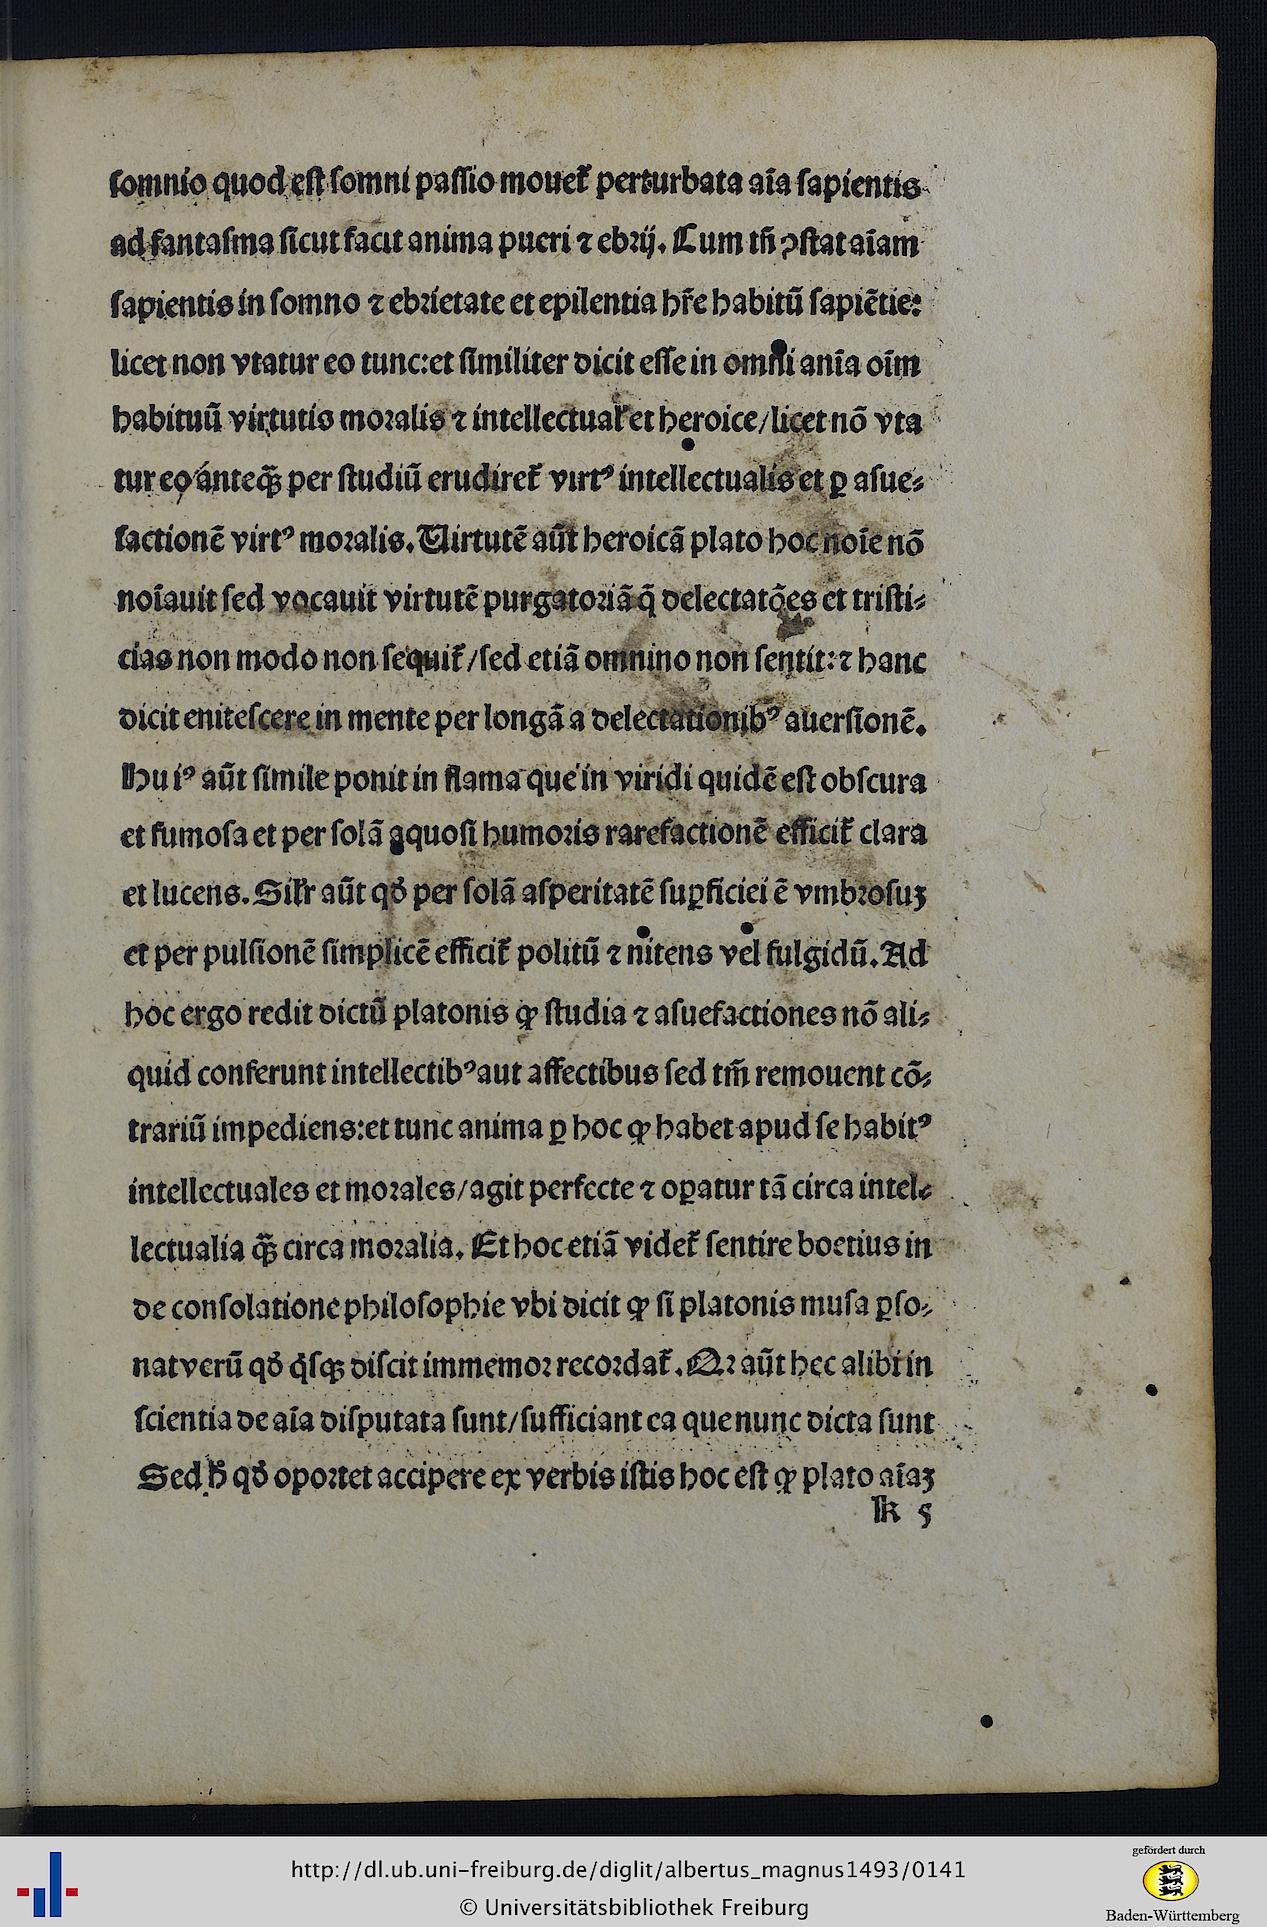 somnio quod est somni passio mouet᷑ perturbata aīa sapientis
ad fantasma sicut facit anima pueri ⁊ ebrij. Cum tñ ꝯstat aīam
sapientis in somno ⁊ ebrietate et epilentia hr̄e habitū sapiētie:
licet non vtatur eo tunc:et similiter dicit esse in omni anīa oīm
habituū virtutis moralis ⁊ intellectual᷑ et heroice/licet nō vta
tur eo anteq̄ꝫ per studiū erudiret᷑ virtꝰ intellectualis et ꝑ asue⸗
factionē virtꝰ moralis. Uirtutē aūt heroicā plato hoc noīe nō
noīauit sed vocauit virtutē purgatoriā q̄ delectatōes et tristi⸗
cias non modo non sequit᷑/sed etiā omnino non sentit:⁊ hanc
dicit enitescere in mente per longā a delectationibꝰ auersionē.
Huiꝰ aūt simile ponit in flama que in viridi quidē est obscura
et fumosa et per solā aquosi humoris rarefactionē efficit᷑ clara
et lucens. Sil᷑r aūt qđ per solā asperitatē suꝑficiei ē vmbrosuꝫ
et per pulsionē simplicē efficit᷑ politū ⁊ nitens vel fulgidū. Ad
hoc ergo redit dictū platonis ꝙ studia ⁊ asuefactiones nō ali⸗
quid conferunt intellectibꝰ aut affectibus sed tm̄ remouent cō⸗
trariū impediens:et tunc anima ꝑ hoc ꝙ habet apud se habitꝰ
intellectuales et morales/agit perfecte ⁊ oꝑatur tā circa intel⸗
lectualia q̄ꝫ circa moralia. Et hoc etiā videt᷑ sentire boetius in
de consolatione philosophie vbi dicit ꝙ si platonis musa ꝑso⸗
nat verū qđ q̇sqꝫ discit immemor recordat᷑. Qꝛ aūt hec alibi in
scientia de aīa disputata sunt/sufficiant ea que nunc dicta sunt
Sed ħ qđ oportet accipere ex verbis istis hoc est ꝙ plato aīaꝫ
k 5
http://dl.ub.uni-freiburg.de/diglit/albertus_magnus1493/0141
© Universitätsbibliothek Freiburg
gefördert durch
Baden-Württemberg